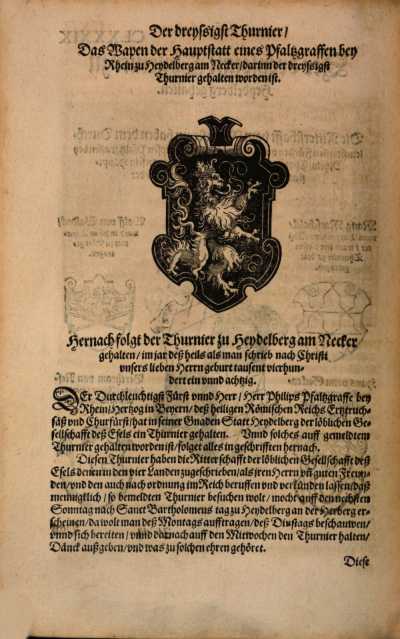 Der dreyssigst Thurnier/
Das Wapen der Hauptstatt eines Pfaltzgraffen bey
Rhein zu Heydelberg am Necker/ darinn der dreyssigst
Thurnier gehalten worden ist.
Hernach folgt der Thurnier zu Heydelberg am Necker
gehalten/ im jar deß heils als man schrieb nach Christi
vnsers lieben Herrn geburt tausent vierhun-
dert ein vnnd achtzig.
DEr Durchleuchtigst Fürst vnnd Herr/ Herr Philips Pfaltzgraffe bey
Rhein/ Hertzog in Beyern/ deß heiligen Römischen Reichs Ertztruch-
säß vnd Churfürst/ hat in seiner Gnaden Statt Heydelberg der löblichen Ge-
sellschafft deß Esels ein Thurnier gehalten. Vnnd solches auff gemeldtem
Thurnier gehalten worden ist/ folget alles in geschrifften hernach.
Diesen Thurnier haben die Ritterschafft der löblichen Gesellschafft deß
Esels denen in den vier Landen zugeschrieben/ als jren Herrn vñ guten Freun-
den/ vnd den auch nach ordnung im Reich beruffen vnd verkünden lassen/ daß
menniglich/ so bemeldten Thurnier besuchen wolt/ mocht auff den nechsten
Sonntag nach Sanct Bartholomeus tag zu Heydelberg an der Herberg er-
scheinen/ da wolt man deß Montags aufftragen/ deß Dinstags beschauwen/
vnnd sich bereiten/ vnnd darnach auff den Mittwochen den Thurnier halten/
Dänck außgeben/ vnd was zu solchen ehren gehöret.
Diese